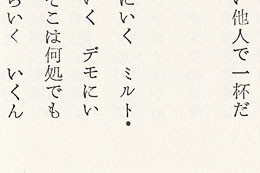 い他人で一杯だ
にいく ミルト・
いく デモにい
そこは何処でも
らいく いくん